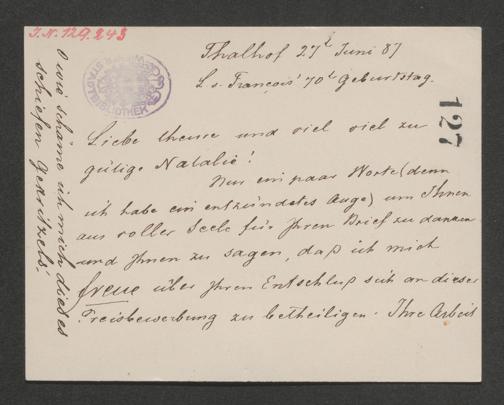 J.N. 129.243
Thalhof 27t Juni 87
L v. François' 70t Geburtstag.
127
Liebe theure und viel viel zu
gütige Natalie!
Nur ein paar Worte (denn
ich habe ein entzündetes Auge) um Ihnen
aus voller Seele für Ihren Brief zu danken
und Ihnen zu sagen, daß ich mich
freue über Ihren Entschluß sich an dieser
Preisbewerbung zu betheiligen. Ihre Arbeit
O wie schäme ich mich dieses
schiefen Gekritzels!